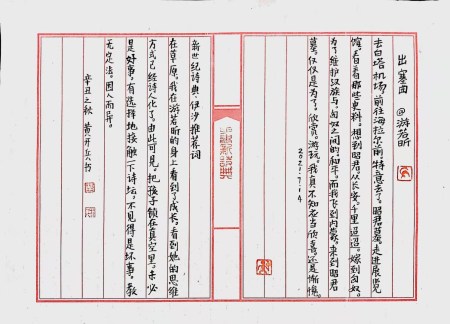 出塞曲 @游若昕
去白塔机场，前往海拉尔前，特意去了。昭君墓，走进展览
馆，看着那些史料。想到昭君，从长安，千里迢迢。嫁到匈奴。
为了维护汉族与，匈奴之间的和平，而我飞到内蒙，来到昭君
墓，仅仅是为了，欣赏，游玩，我真不知应当欣喜还是惭愧。
2021.7.14
新世纪诗典
新世纪诗典，伊沙推荐词
在草原。我在游若昕的身上看到了成长，看到她的思维
方式已经诗人化了。由此可见。把孩子锁在真空里。未必
是好事，有选择地接触一下诗坛，不见得是坏事。教
无定法。因人而异。
辛丑之秋 黄开兵书